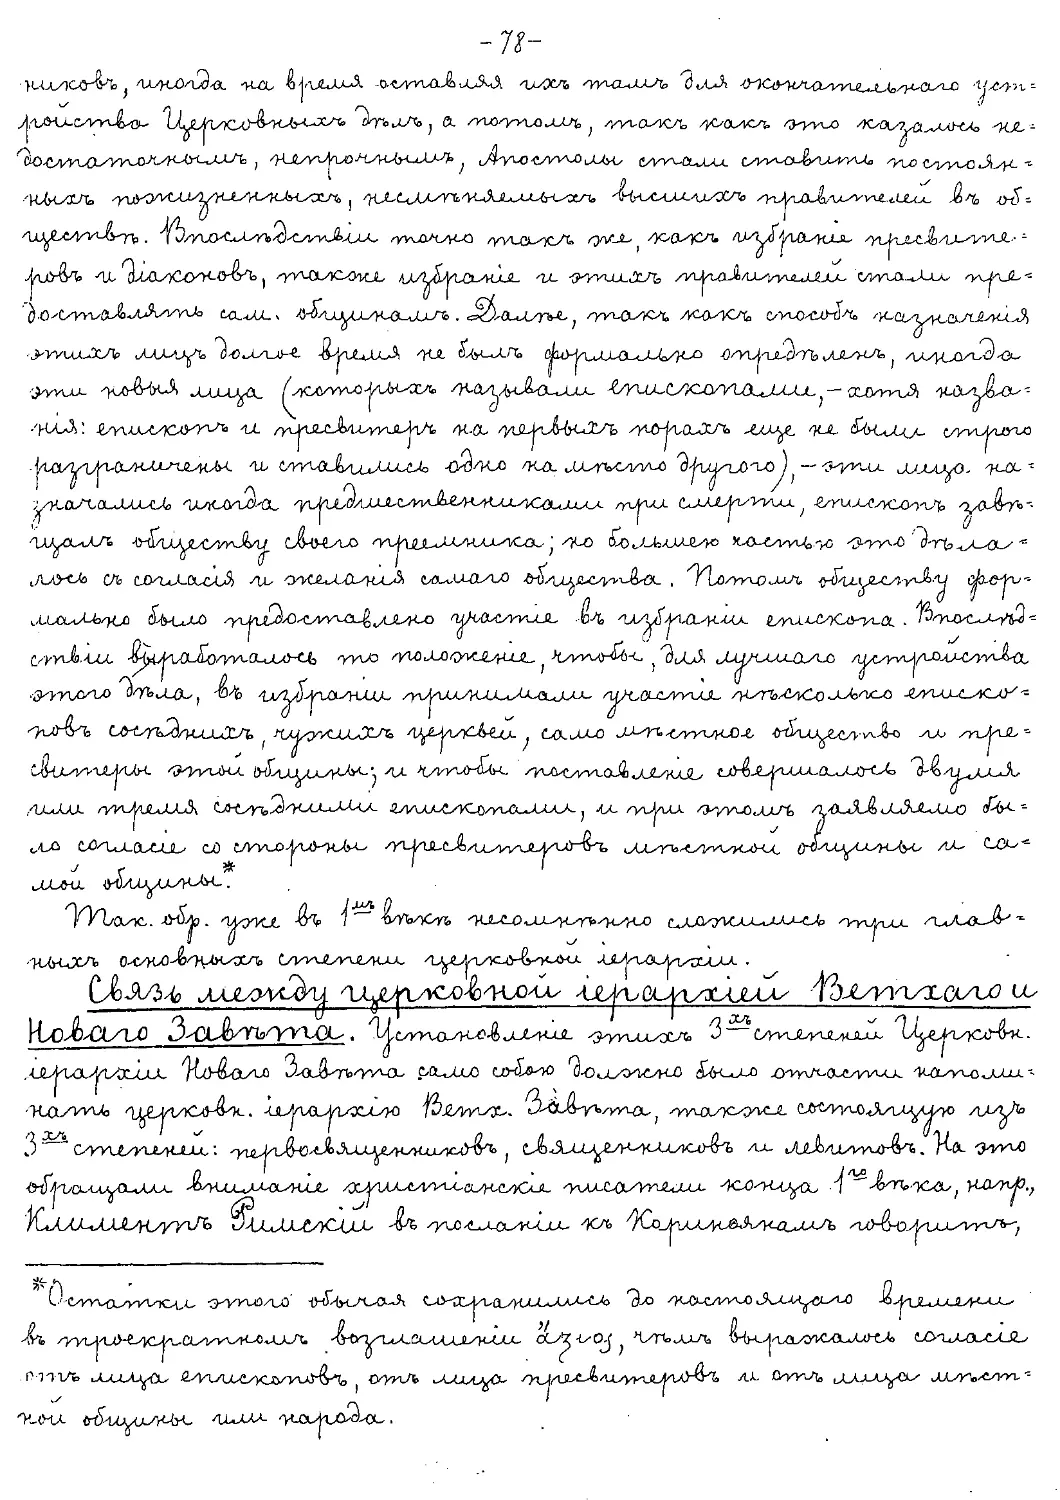 -78-
никовъ, иногда на время оставляя ихъ тамъ для окончательнаго уст=
ройства Церковныхъ дѣлъ, а потомъ, такъ какъ это казалось не=
достаточнымъ, непрочнымъ, Апостолы стали ставить постоян=
ныхъ пожизненныхъ, несмѣняемыхъ высшихъ правителей въ об=
ществѣ. Впослѣдствіи точно такъ же, какъ избраніе пресвите=
ровъ и діаконовъ, также избраніе и этихъ правителей стали пре=
доставлять сам. общинамъ. Далѣе, такъ какъ способъ назначенія
этихъ лицъ долгое время не былъ формально опредѣленъ, иногда
эти новыя лица (которыхъ называли епископами,-хотя назва=
нія: епископъ и пресвитеръ на первыхъ порахъ еще не были строго
разграничены и ставились одно на мѣсто другого),-эти лица на=
значались иногда предшественниками при смерти, епископъ завѣ=
щалъ обществу своего преемника; но большею частью это дѣла=
лось съ согласія и желанія самаго общества. Потомъ обществу фор=
мально было предоставлено участіе въ избраніи епископа. Впослѣд=
ствіи выработалось то положеніе, чтобы, для лучшаго устройства
этого дѣла, въ избраніи принимали участіе нѣсколько еписко=
повъ сосѣднихъ, чужихъ церквей, само мѣстное общество и пре=
свитеры этой общины; и чтобы поставленіе совершалось двумя
или тремя сосѣдними епископами, и при этомъ заявляемо бы=
ло согласіе со стороны пресвитеровъ мѣстной общины и са=
мой общины.*
Так. обр. уже въ 1мъ вѣкѣ несомнѣнно сложились три глав=
ныхъ основныхъ степени церковной іерархіи.
Связь между церковной іерархіей Ветхаго и
Новаго Завѣта. Установленіе этихъ 3хъ степеней Церковн.
іерархіи Новаго Завѣта само собою должно было отчасти напоми=
нать церковн. іерархію Ветх. Завѣта, также состоящую изъ
3хъ степеней: первосвященниковъ, священниковъ и левитовъ. На это
обращали вниманіе христіанскіе писатели конца 1го вѣка, напр.,
Климентъ Римскій въ посланіи къ Коринѳянамъ говоритъ,
*Остатки этого обычая сохранились до настоящаго времени
въ троекратномъ возглашеніи ἄξιος, чѣмъ выражалось согласіе
отъ лица епископовъ, отъ лица пресвитеровъ и отъ лица мѣст=
ной общины или народа.